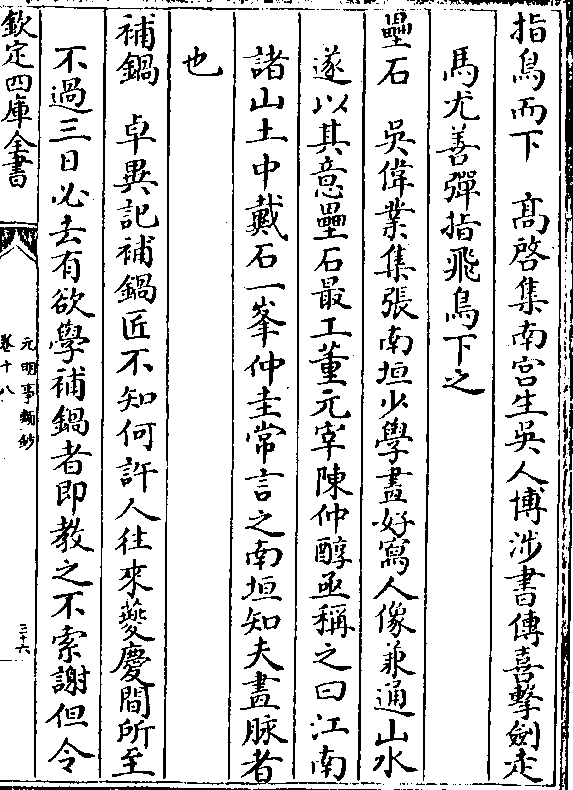 指鳥而下　髙啓集南宫生吳人博涉書傳喜擊劍走
馬尤善彈指飛鳥下之
壘石　吳偉業集張南垣少學畫好寫人像兼通山水
遂以其意壘石最工董元宰陳仲醇亟稱之曰江南
諸山土中戴石一峯仲圭常言之南垣知夫畫脉者
也
補鍋　卓異記補鍋匠不知何許人往來夔慶間所至
不過三日必去有欲學補鍋者即教之不索謝但令
欽定四庫全書
元明事類鈔
卷十八
三十六